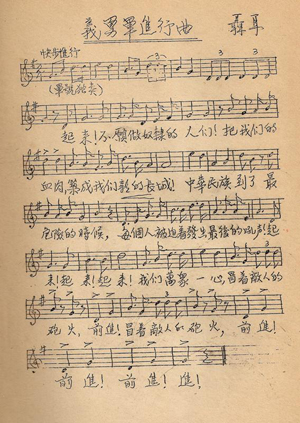 義勇軍進行曲 聶耳
快步進行
3 3 3
(軍號獨奏)
起來！不願做奴隸的人們！把我們的
血肉築成我們新的長城！中華民族到了最
危險的時候，每個人被迫着發出最後的吼聲！起
來！起來！起來！我們萬眾一心，冒着敵人的
砲火，前進！冒着敵人的砲火，前進！
前進！前進！進！